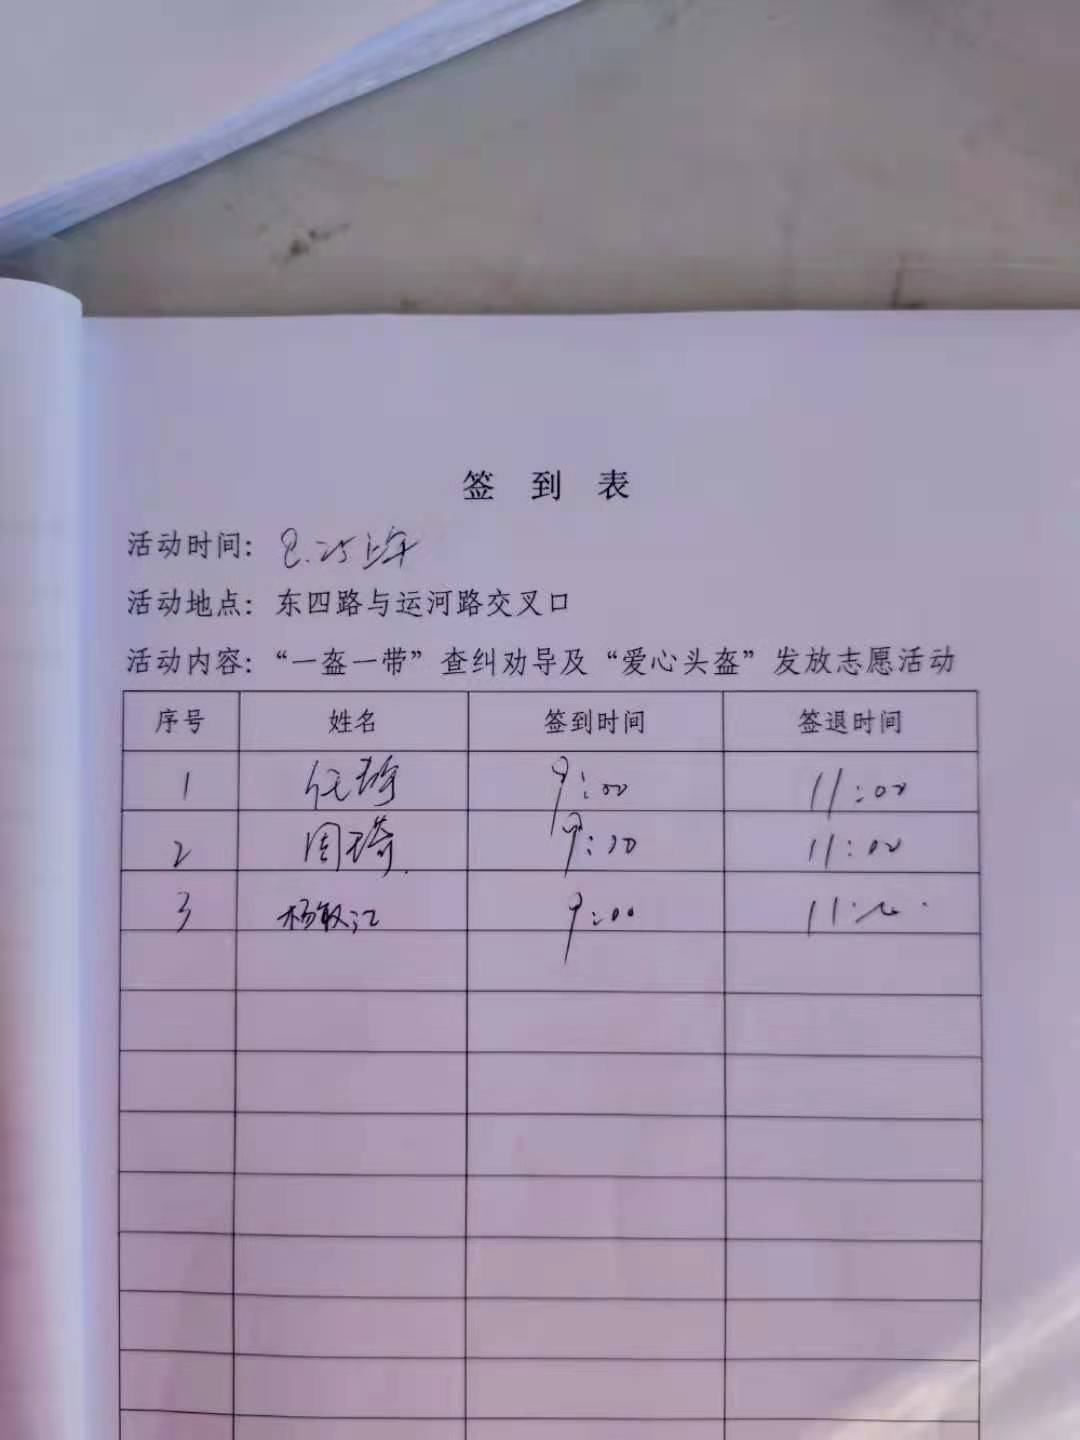 签到表
活动时间: 8.25上午
活动地点: 东四路与运河路交叉口
活动内容: “一盔一带”查纠劝导及“爱心头盔”发放志愿活动
序号 姓名 签到时间 签退时间
1 任 9:00 11:00
2 周琦 9:00 11:00
3 杨敏江 9:00 11:00